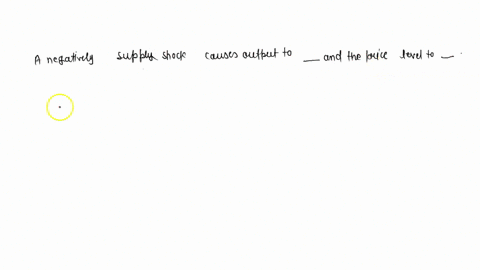 A negatively supply shock causes output to __ and the price level to __ .